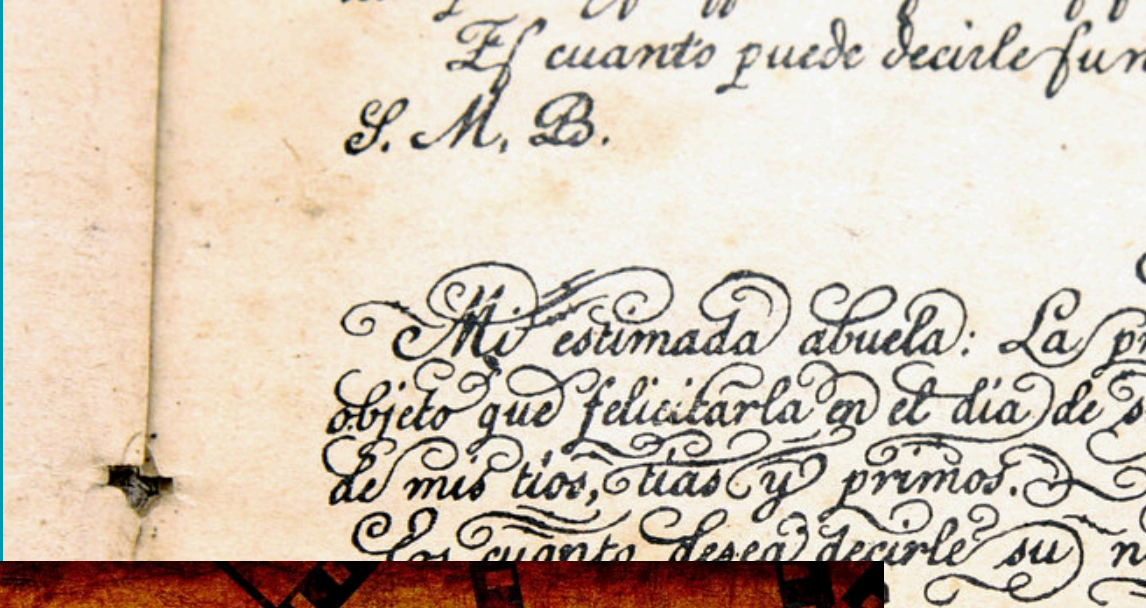 Es cuanto puede decirle su
S. M. B.
Mi estimada abuela: La
objeto que felicitarla en el dia de
de mis tios, tias y primos.
cuanto desea decirle su